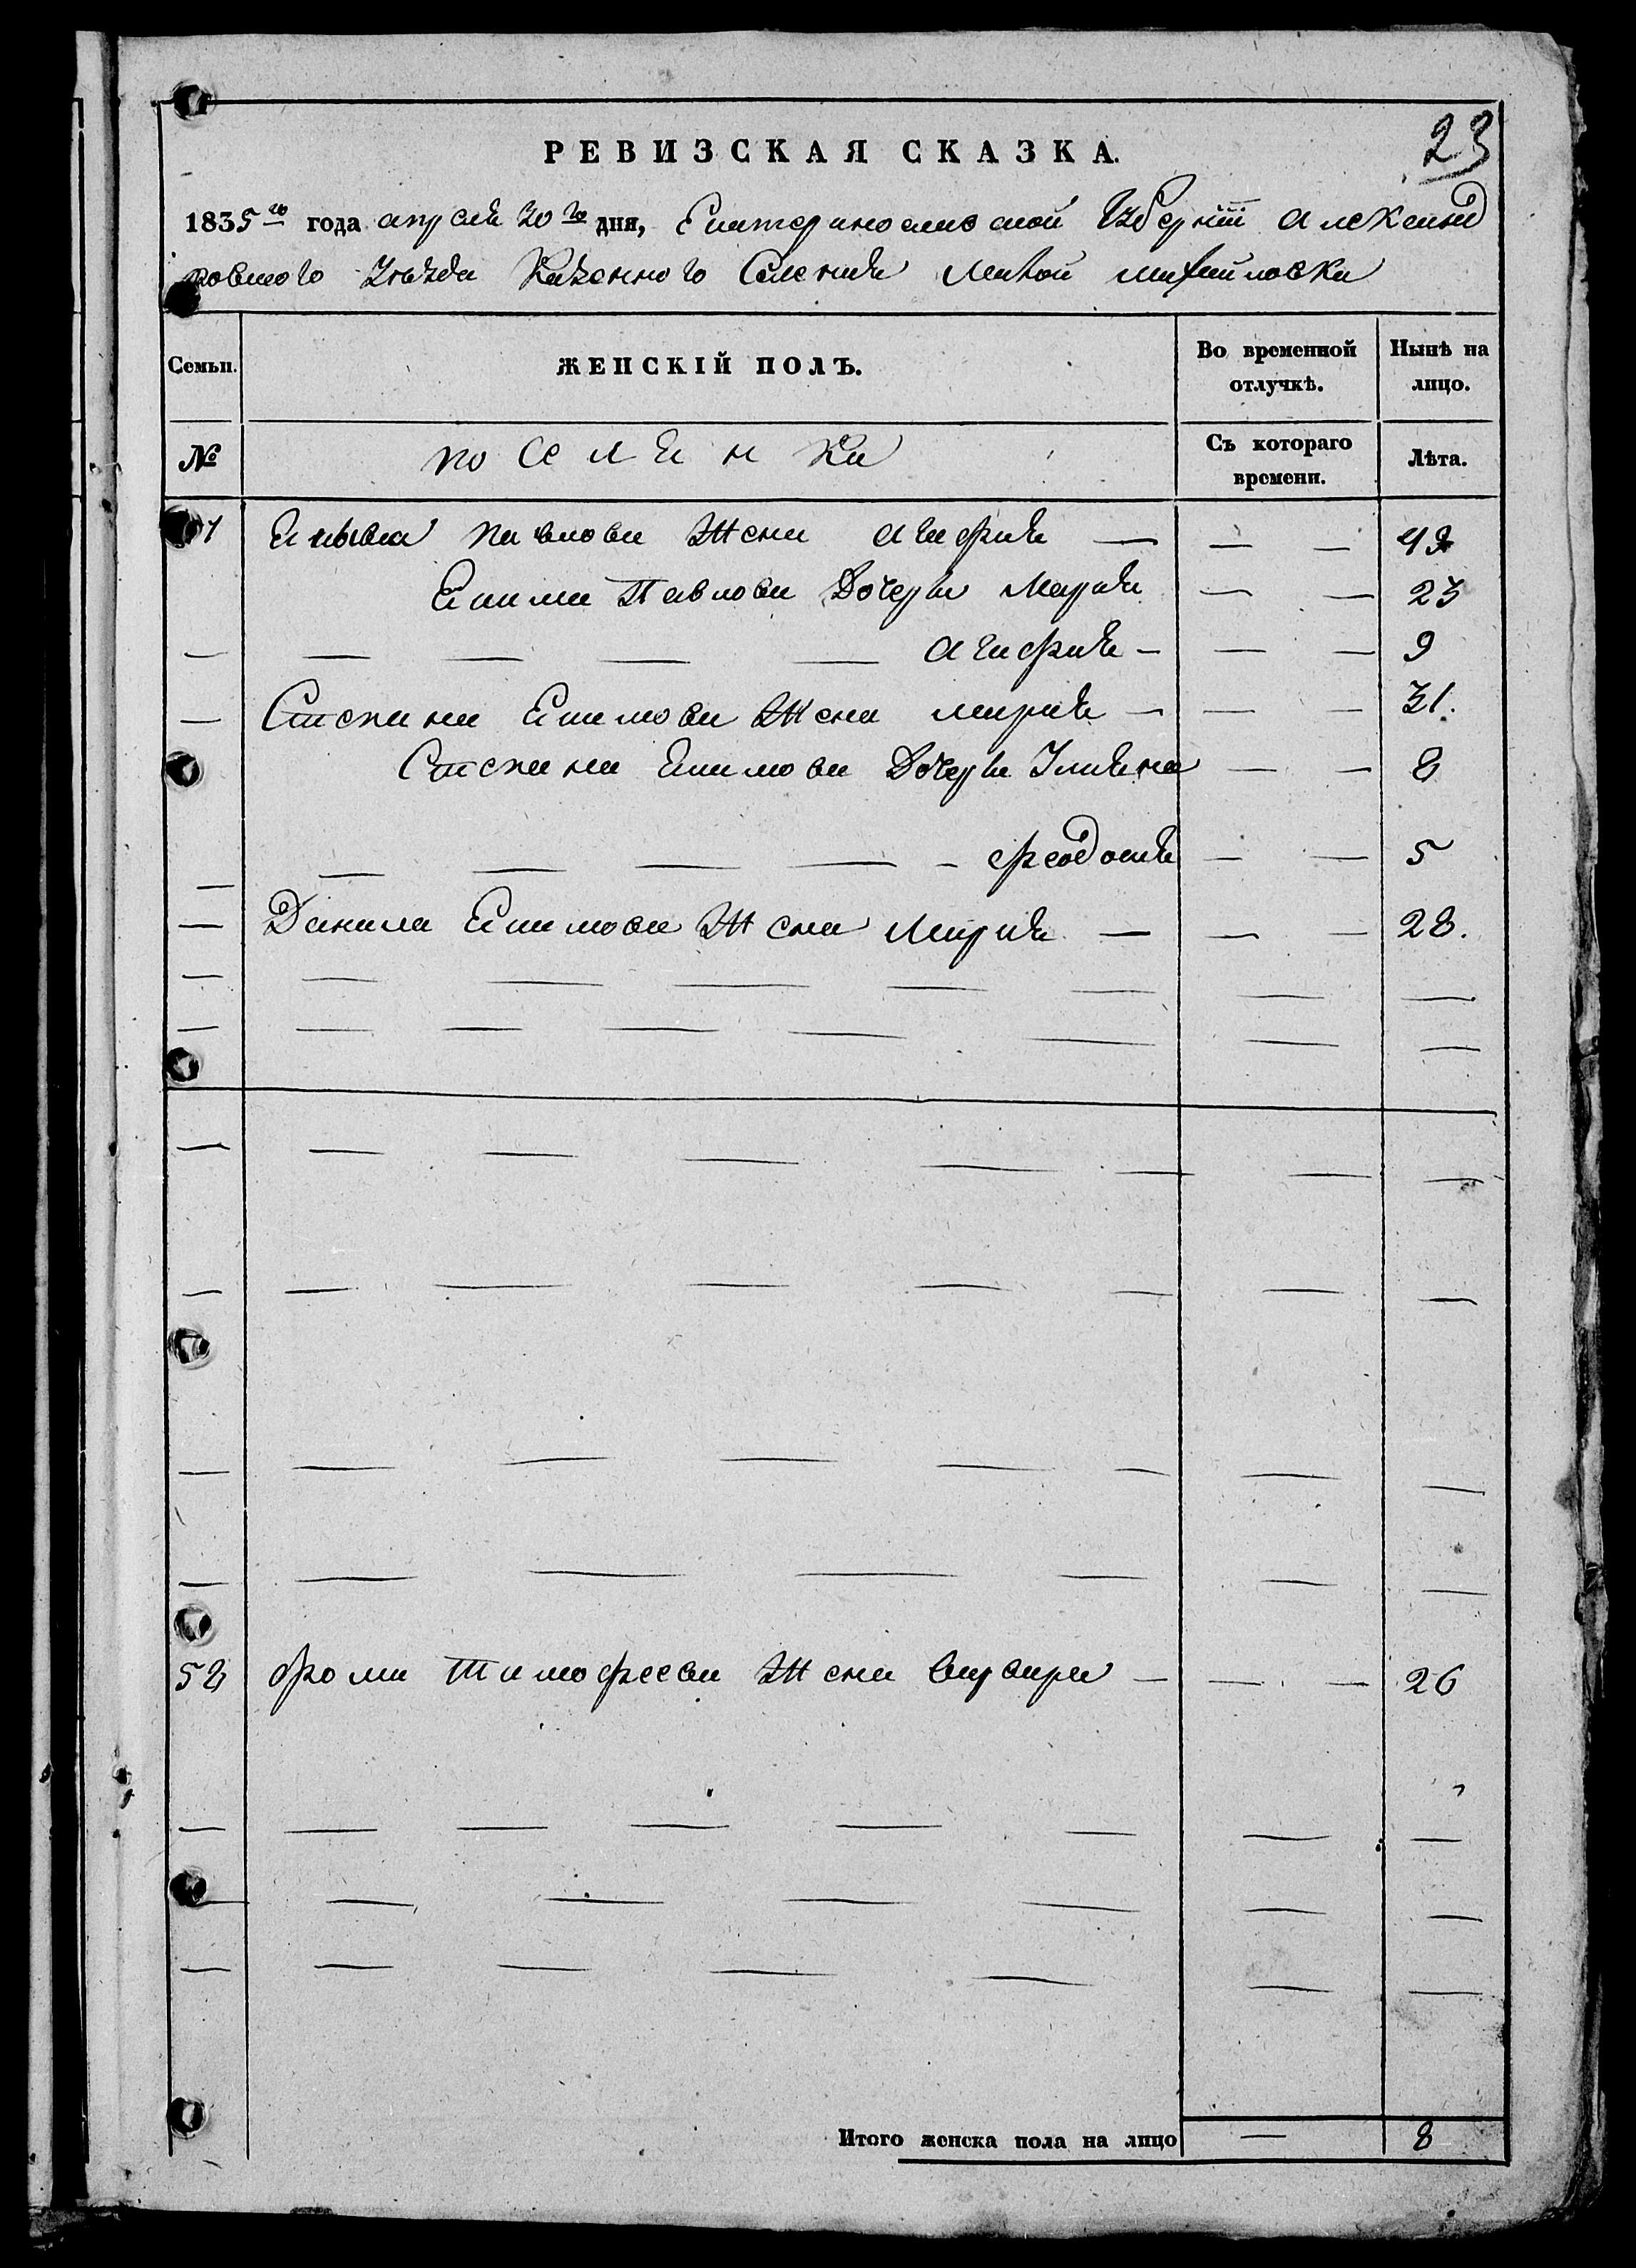 23
РЕВИЗСКАЯ СКАЗКА.
1835го года апреля 20го дня, Екатеринославской Губерніи Александ
ровского Уѣзда Казенного Селенія Малой Михайловки
Семьи. ЖЕНСКІЙ ПОЛЪ. Во временной отлучкѣ. Нынѣ на лицо.
№ поселянка Съ котораго времени. Лѣта.
Павлова Жена Агафия — — — 49
Екима Павлова Дочери Мария — — 23
— — — — — Агафия — — — 9
— Степана Екимова Жена Мария — — — 31.
Степана Екимова Дочери Ульяна — — 8
— — — — — — Феодосия — — 5
— Данила Екимова Жена Мария — — — 28.
52 Фома Тимофеева Жена Варвара — — — 26
Итого женска пола на лицо — 8